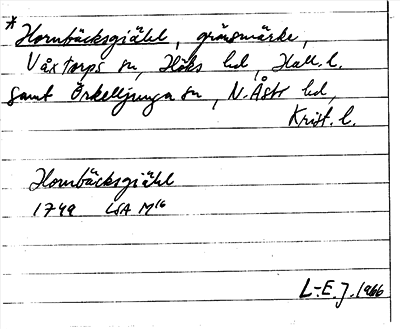 * Hornbäcksgiähl, gränsmärke,
Våxtorps sn, Höks hd, Hall. l.
samt Örkelljunga sn, N. Åsbo hd,
Krist. l.
Hornbäcksgiähl
1749 LSA M16
L-E. J. 1966